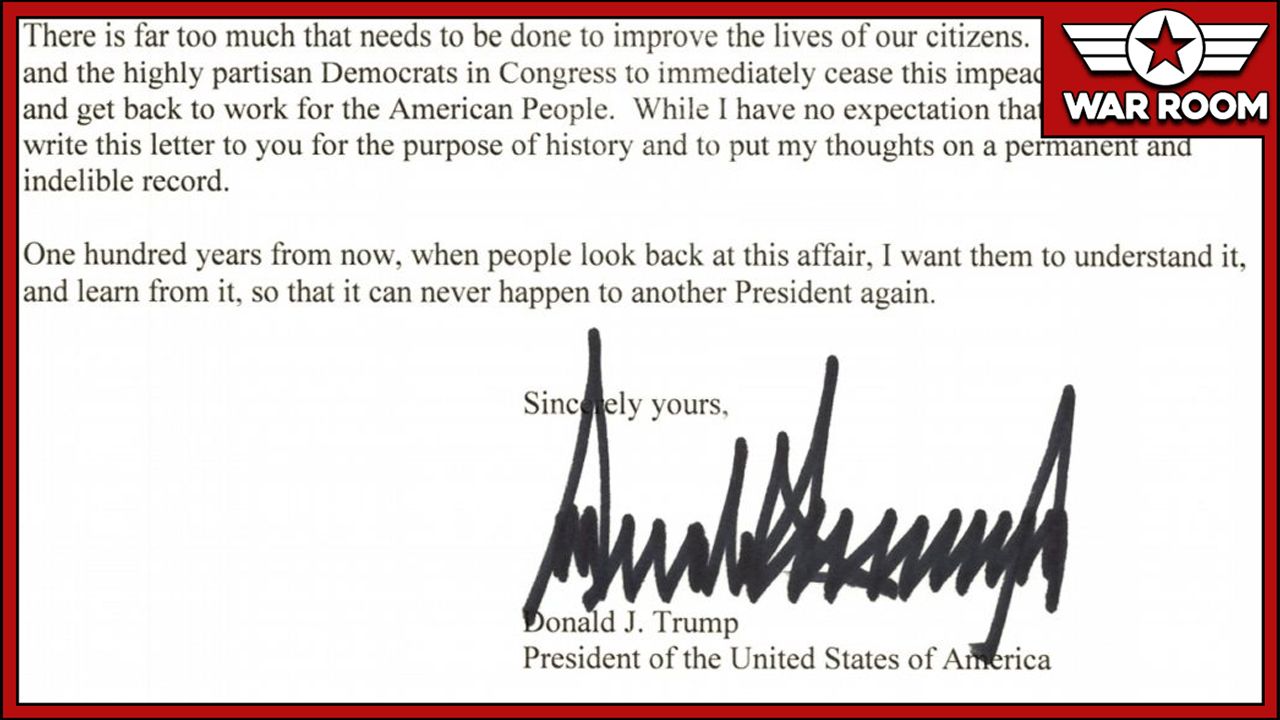 There is far too much that needs to be done to improve the lives of our citizens.
and the highly partisan Democrats in Congress to immediately cease this impeac
and get back to work for the American People. While I have no expectation that
write this letter to you for the purpose of history and to put my thoughts on a permanent and
indelible record.
One hundred years from now, when people look back at this affair, I want them to understand it,
and learn from it, so that it can never happen to another President again.
Sincerely yours,
Donald J. Trump
President of the United States of America
WAR ROOM